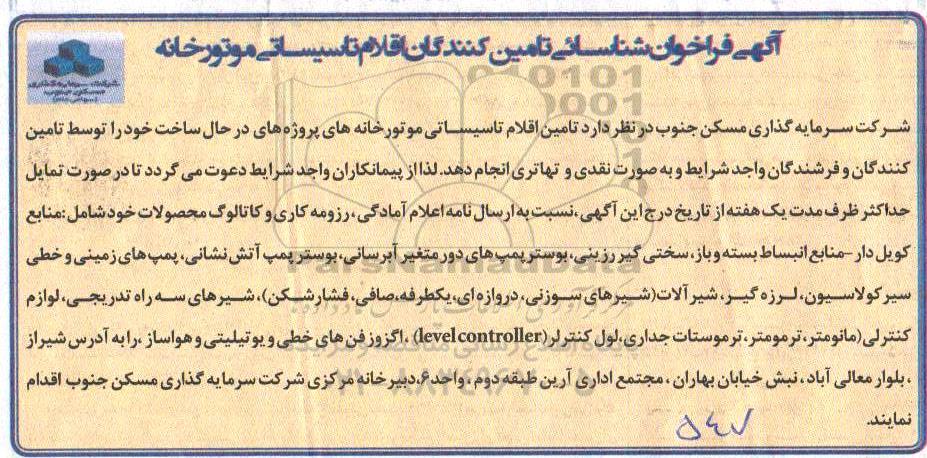 آگهی فراخوان شناسائی تامین کنندگان اقلام تاسیساتی موتورخانه
شرکت سرمایه گذاری
مسکن جنوب
(سهامی عام)
شرکت سرمایه گذاری مسکن جنوب در نظر دارد تامین اقلام تاسیساتی موتورخانه های پروژه های در حال ساخت خود را توسط تامین
کنندگان و فرشندگان واجد شرایط و به صورت نقدی و تهاتری انجام دهد. لذا از پیمانکاران واجد شرایط دعوت می گردد تا در صورت تمایل
حداکثر ظرف مدت یک هفته از تاریخ درج این آگهی، نسبت به ارسال نامه اعلام آمادگی، رزومه کاری و کاتالوگ محصولات خود شامل: منابع
کویل دار -منابع انبساط بسته و باز، سختی گیر رزینی، بوستر پمپ های دور متغیر آبرسانی، بوستر پمپ آتش نشانی، پمپ های زمینی و خطی
سیرکولاسیون، لرزه گیر، شیرآلات (شیرهای سوزنی، دروازه ای، یکطرفه، صافی، فشارشکن)، شیرهای سه راه تدریجی، لوازم
کنترلی (مانومتر، ترمومتر، ترموستات جداری، لول کنترلر (level controller)، اگزوز فن های خطی و یوتیلیتی و هواساز، را به آدرس شیراز
، بلوار معالی آباد، نبش خیابان بهاران، مجتمع اداری آرین طبقه دوم، واحد ۶، دبیرخانه مرکزی شرکت سرمایه گذاری مسکن جنوب اقدام
نمایند.
۵۴۷
ParsNamadData